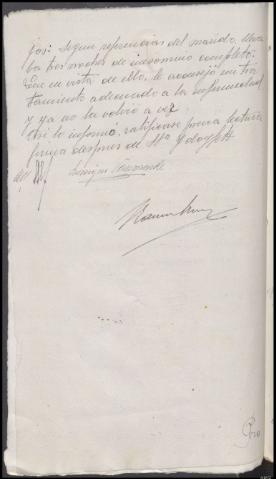 jos: Según referencias del marido, lleva
ba tres noches de insomnio completo;
Que en vista de ello, le aconsejó un tra
tamiento adecuado a la enfermedad
y ya no la volvió a ver.
Así lo informó, ratificase previa lectura
firma después de S.Sª y doy fe
Enrique